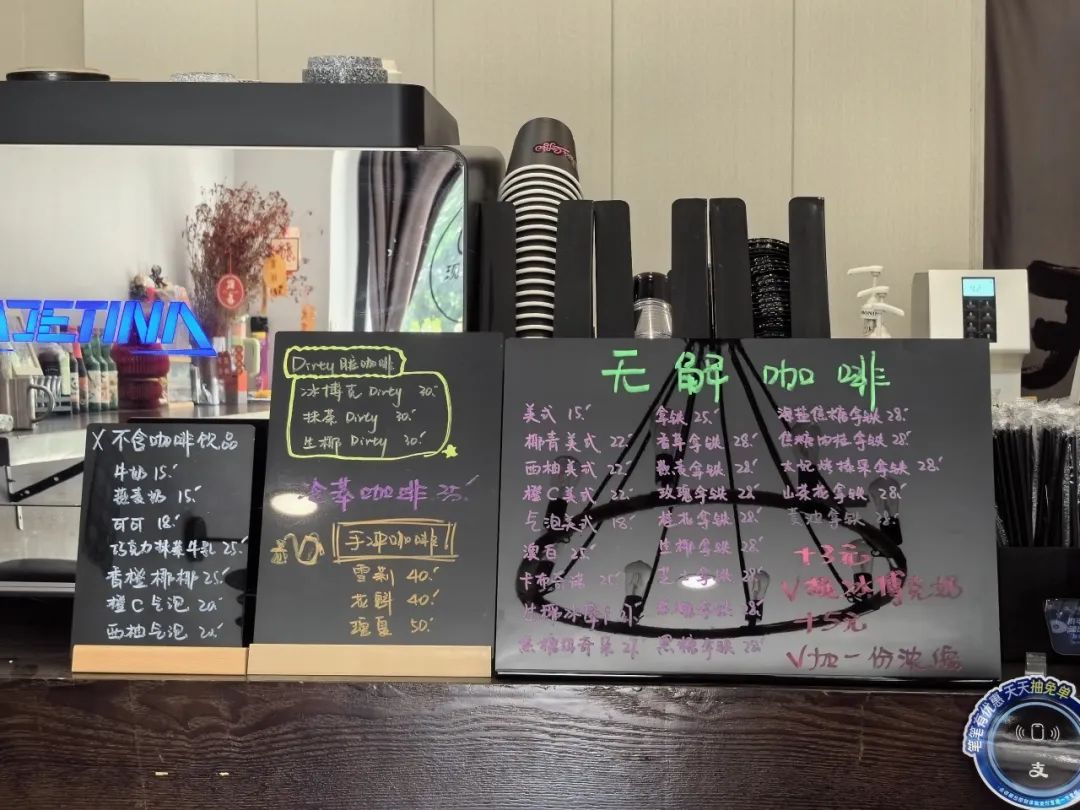 X 不含咖啡饮品
牛奶 15.
燕麦奶 15.
可可 18.
巧克力抹茶牛乳 25.
香橙椰椰 25.
橙C气泡 20.
西柚气泡 20.
Dirty 脏咖啡
冰博克 Dirty 30.
抹茶 Dirty 30.
生椰 Dirty 30.
冷萃咖啡 35.
手冲咖啡!
雪莉 40.
花魁 40.
瑰夏 50.
无解咖啡
美式 15.
椰青美式 22.
西柚美式 22.
橙C美式 22.
气泡美式 18.
澳白 25.
卡布奇诺 25.
拿铁 25.
香草拿铁 28.
燕麦拿铁 28.
玫瑰拿铁 28.
桂花拿铁 28.
生椰拿铁 28.
拿铁 28.
拿铁 28.
黑糖拿铁 28.
海盐焦糖拿铁 28.
焦糖肉桂拿铁 28.
太妃烤榛果拿铁 28.
山茶花拿铁 28.
拿铁 28.
+3元
√换冰博克奶
+5元
√加一份浓缩
笔笔有优惠 天天抽免单
支